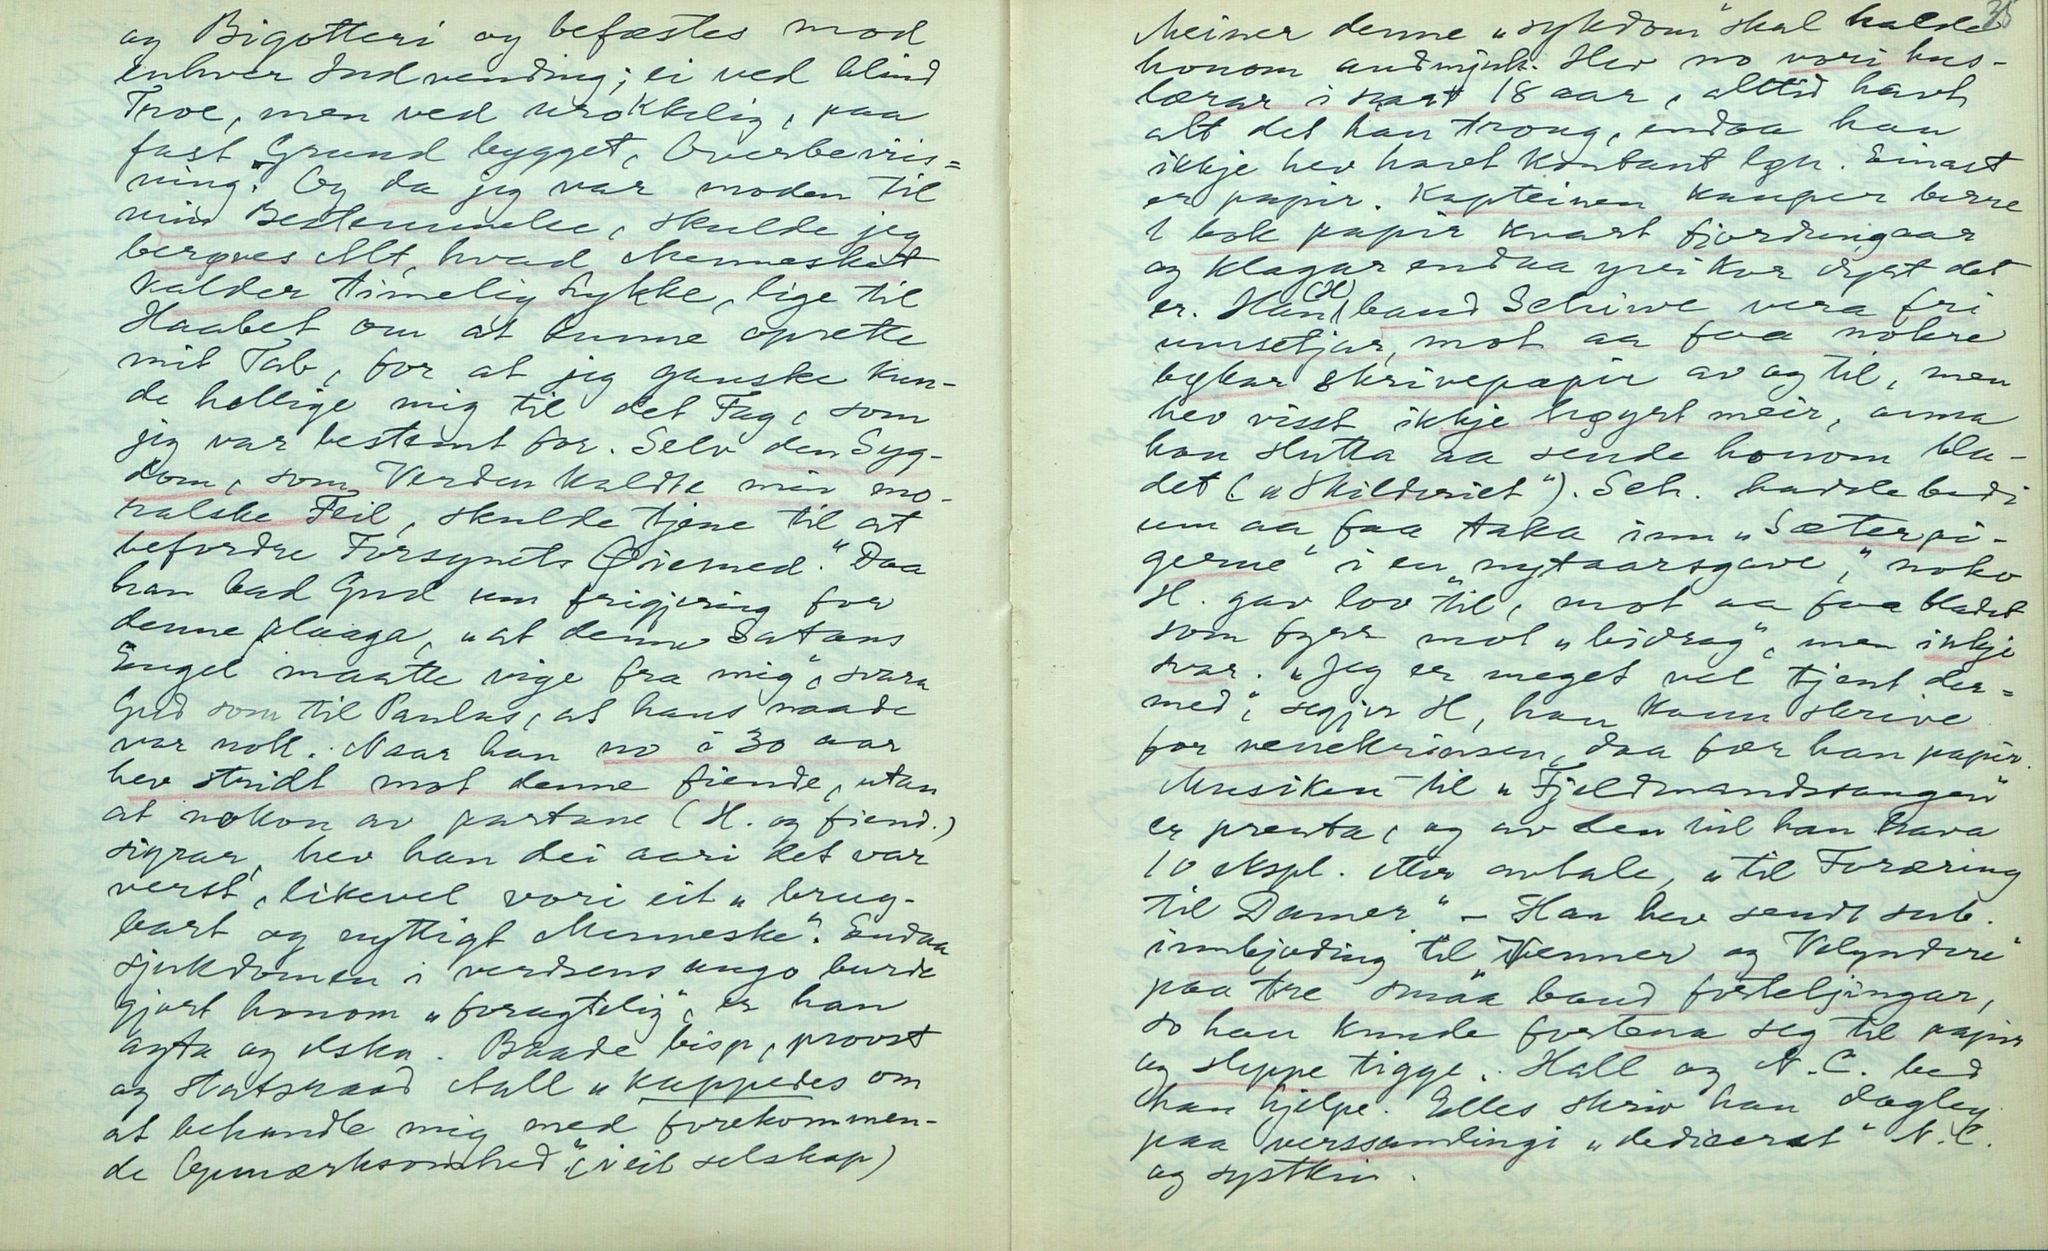 og Bigotteri og befæstes mod
enhver Indvending; ei ved blind
Troe, men ved urokkelig, paa
fast Grund bygget, Overbevis=
ning." Og da jeg var moden til
min Bestemmelse, skulde jeg
berøves Alt, hvad Mennesket
kalder timelig Lykke, lige til
Haabet om at kunne oprette
mit Tab, for at jeg ganske kun-
de hellige mig til det Fag, som
jeg var bestemt for. Selv den Syg-
dom, som Verden kaldte min mo-
ralske Feil, skulde tjene til at
befordre Forsynets Øiemed." Daa
han bad Gud um frigjering for
denne plaaga, "at denne Satans
Engel maatte vige fra mig", svara
Gud som til Paulus, at hans naade
var nok. Naar han no i 30 aar
hev stridt mot denne fiende, utan
at nokon av partane (H. og fiend.)
sigrar, hev han dei aari det var
verst, likevel vori eit "brug-
bart og nyttigt Menneske". Endaa
sjukdomen i verdsens augo burde
gjort honom "foragtelig", er han
agta og elska. Baade bisp, provst
og statsraad Aall "kappedes om
at behandle mig med forekommen-
de Opmærksomhed", (i eit selskap)
35
Meiner denne "sykdom" skal halde
honom audmjuk. Hev no vori hus-
lærar i snart 18 aar, alltid havt
alt det han trong, endaa han
ikkje hev havt kontant løn. Einast
er papir. Kapteinen kauper berre
1 bok papir kvart fjordungaar
og klagar endaa yvi kor dyrt det
er. Han (H) baud Schiwe vera fri
umsetjar, mot aa faa nokre
bøkar skrivepapir av og til, men
hev visst ikkje høyrt meir, anna
han slutta aa sende honom bla-
det ("Skilderiet"). Sch. hadde bedi
um aa faa taka inn "Sæterpi-
gerne" i en "nytaarsgave", noko
H. gav lov til, mot aa faa bladet
som fyrr mot "bidrag", men ikkje
svar. "Jeg er meget vel tjent der=
med", segjer H, han kann skrive
for venekrinsen, daa fær han papir.
Musiken til "Fjeldmandssangen"
er prenta, og av den vil han hava
10 ekspl. etter avtale, "til Foræring
til Damer" – Han hev sendt sub.
innbjoding til "Venner og Velyndere"
paa tre smaa band forteljingar,
so han kunde fortena seg til papir
og sleppe tigge. Hall og N.C. bed
han hjelpe. Elles skriv han dagleg
paa verssamlingi "dediceret" N.C.
og systkin.